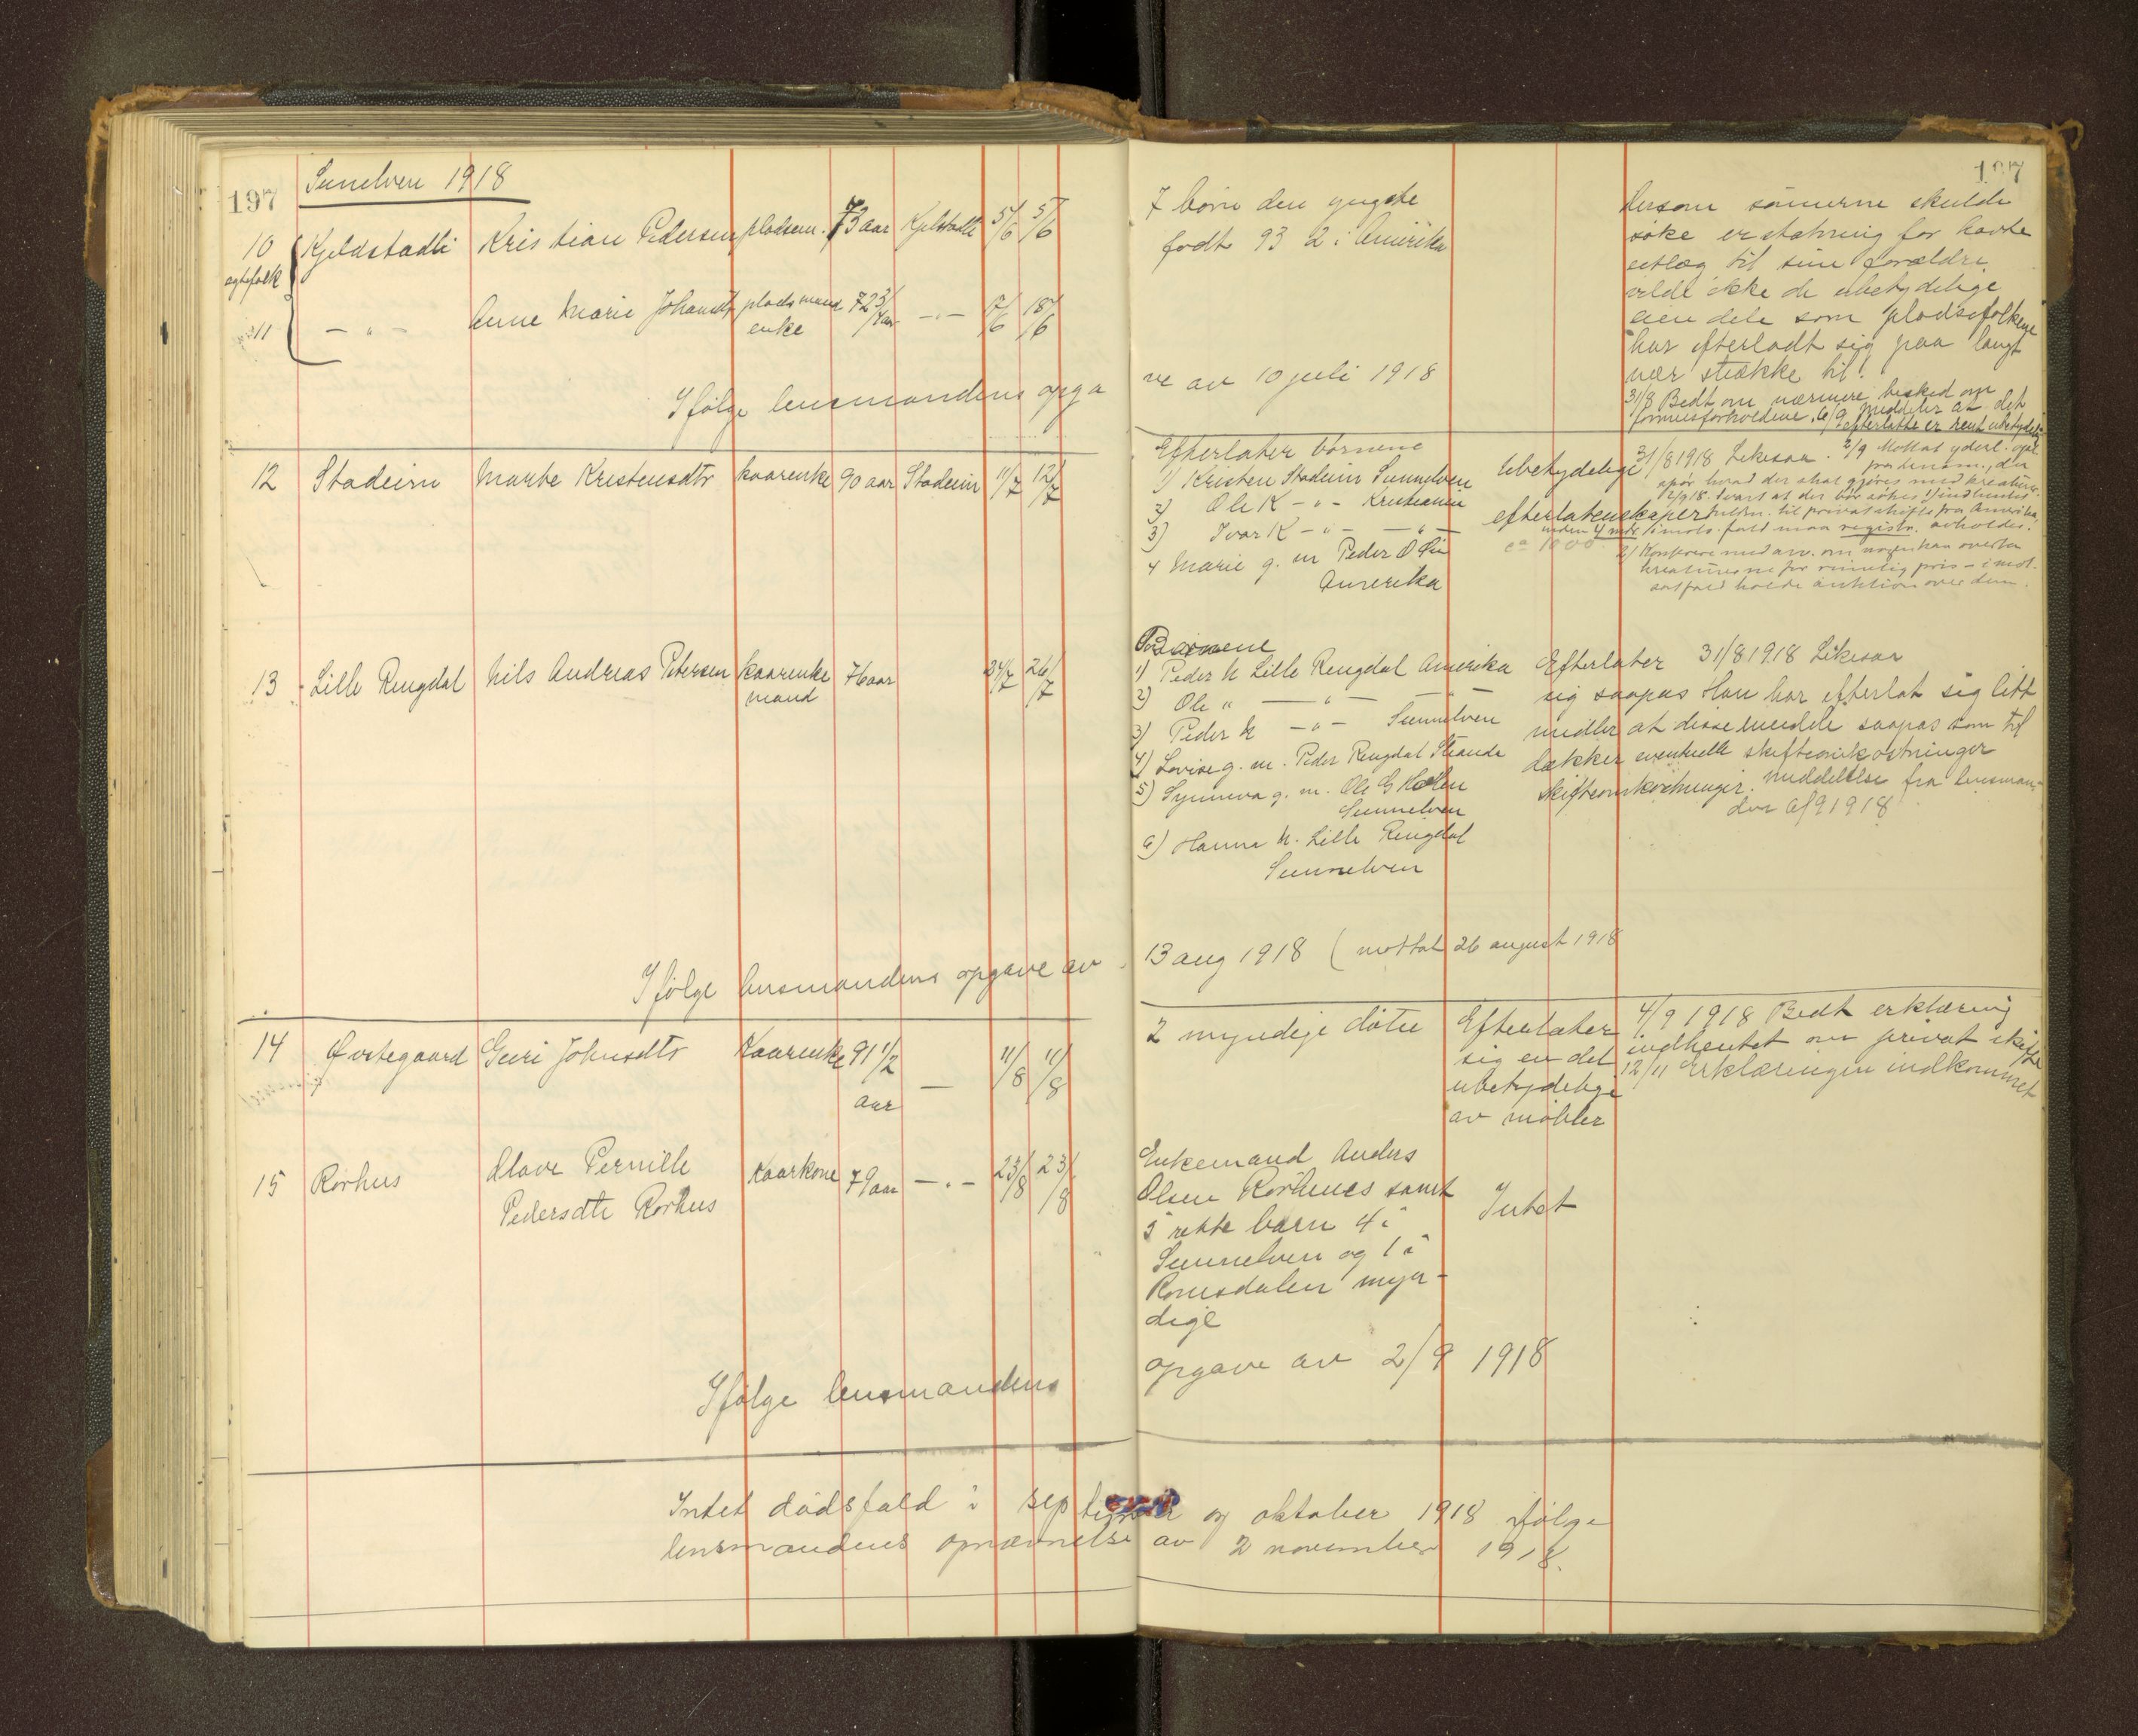 197 Sunelven 1918
10 Kjeldstadli Kristian Pedersen pladsm. 73 aar Kjelstadli 5/6 5/6
egtefolk
11 — " — Anne Marie Johansdt pladsmand 72 3/4 aar — " — 17/6 18/6
enke
Ifølge lensmandens opga
12 Stadeim Marte Kristensdtr kaarenke 90 aar Stadeim 11/7 12/7
13 Lille Ringdal Nils Andreas Petersen kaarenke 76 aar 24/7 26/7
mand
Ifølge lensmandens opgave av
14 Øvstegaard Guri Johnsdtr Kaarenke 91 1/2 — 11/8 11/8
aar
15 Rørhus Olave Pernille Kaarkone 79 aar — " — 23/8 23/8
Pedersdtr Rørhus
Ifølge lensmandens
197
7 børn den yngste
født 93 2 i Amerika
ve av 10 juli 1918
Dersom sønnerne skulde
søke erstatning for havte
utlæg til sine forældre
vilde ikke de ubetydelige
eiendele som pladsfolkene
har efterladt sig paa langt
nær strække til.
31/8 Bedt om nærmere besked om
formuesforholdene. 6/9 meddeler at det
efterlatte er rent ubetydelig
Efterlater børnene
1) Kristen Stadeim Sunnelven
2) Ole K — " — Kristiania
3) Ivar K — " — — " —
4 Marie g. m Peder O
Amerika
Ubetydelige
efterlatenskaper
ca 1000
31/8 1918 Likesaa. 2/9 Mottat yderl. opl.
fra lensm., der
spør hvad der skal gjøres med kreaturer.
12/9 18. Svart at der bør søkes 1/ indhentet
fuldm. til privat skifte fra Amerika,
inden 4 mdr. I motsat fald maa registr. avholdes.
2/ Konferere med arv. om nogen kan overta
kreaturerne for rimelig pris - i mot-
satfald holde auktion over dem.
Børnene
1) Peder N Lille Ringdal Amerika
2) Ole " — " —
3) Peder N — " — Sunnelven
4) Lovise g. m. Peder Ringdal Stranda
5) Synneva g. m. Ole G Hollen
Sunnelven
6) Hanna N. Lille Ringdal
Sunnelven
Efterlater 31/8 1918 Likesaa
sig saapas Han har efterlat sig litt
midler at disse saapas som til
dækker eventuelle skifteomkostninger
skifteomkostninger. Meddelelse fra lensman-
den 6/9 1918
13 aug 1918 (mottat 26 august 1918
2 myndige døtre
Efterlater
sig en del
ubetydelige
av møbler
4/9 1918 Bedt erklæring
indhentet om privat skifte
12/11 Erklæringen indkommet
Enkemand Anders
Olsen Rørhus samt
5 rette barn 4 i
Sunnelven og 1 i
Romsdalen myn-
dige
Intet
opgave av 2/9 1918
Intet dødsfald i september og oktober 1918 ifølge
lensmandens opnævnelse av 2 november 1918.